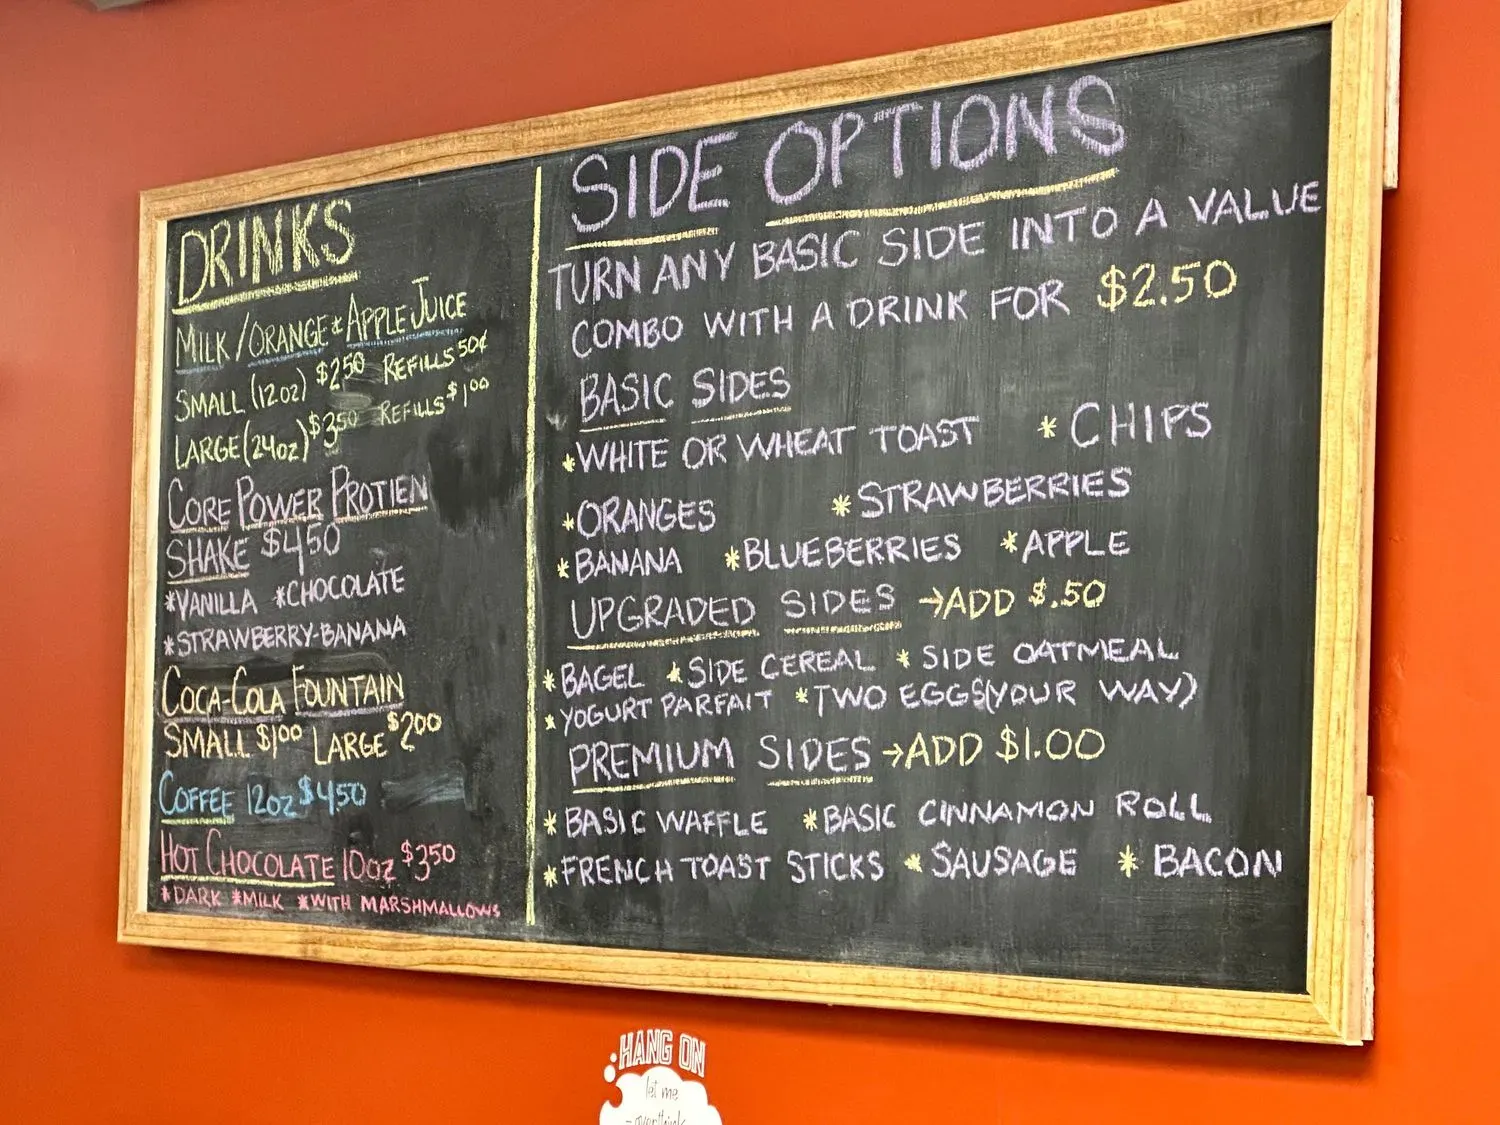 DRINKS
MILK/ORANGE*APPLE JUICE
SMALL (12OZ) $2.50 REFILLS 50¢
LARGE (24OZ) $3.50 REFILLS $1.00
CORE POWER PROTIEN
SHAKE $4.50
*VANILLA *CHOCOLATE
*STRAWBERRY-BANANA
COCA-COLA FOUNTAIN
SMALL $1.00 LARGE $2.00
COFFEE 12OZ $4.50
HOT CHOCOLATE 10OZ $3.50
*DARK *MILK *WITH MARSHMALLOWS
SIDE OPTIONS
TURN ANY BASIC SIDE INTO A VALUE
COMBO WITH A DRINK FOR $2.50
BASIC SIDES
*WHITE OR WHEAT TOAST *CHIPS
*ORANGES *STRAWBERRIES
*BANANA *BLUEBERRIES *APPLE
UPGRADED SIDES →ADD $.50
*BAGEL *SIDE CEREAL *SIDE OATMEAL
*YOGURT PARFAIT *TWO EGGS(YOUR WAY)
PREMIUM SIDES →ADD $1.00
*BASIC WAFFLE *BASIC CINNAMON ROLL
*FRENCH TOAST STICKS *SAUSAGE *BACON
HANG ON
let me
overthink